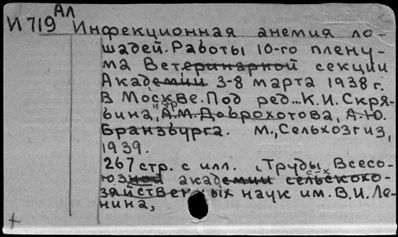 Ал
И719 Инфекционная анемия ло-
шадей. Работы 10-го плену-
ма Ветеринарной секции
Академии 3-8 марта 1938г.
в Москве. Под ред... К.И. Скря-
бина, А.М. Доброхотова, А.Ю.
Бранзбурга. М., Сельхозгиз,
1939.
267 стр. с илл. (Труды Всесо-
юзной академии сельскохо-
зяйственных наук им. В.И. Ле-
нина,